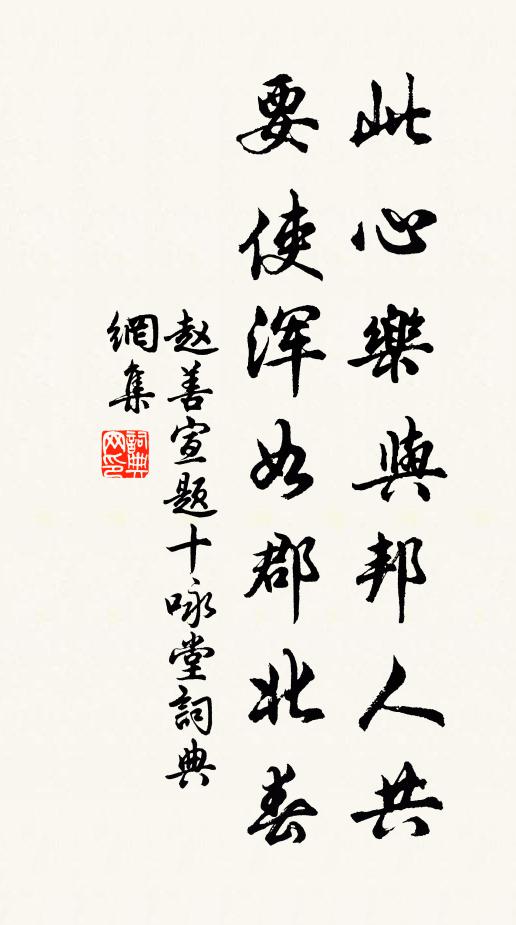 此心樂與邦人共
要使渾如郡北春
赵善宣题十咏堂詞典
網集
詞典网印